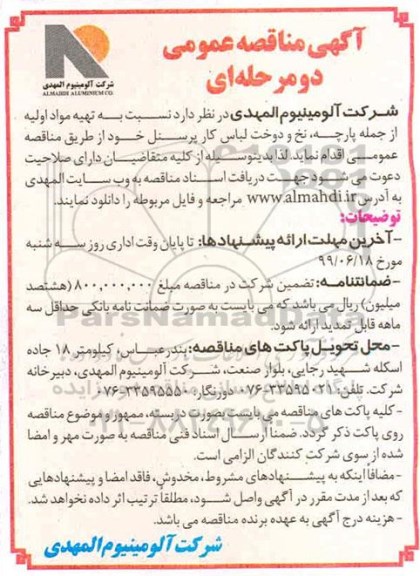 آگهی مناقصه عمومی
دو مرحله‌ای
شرکت آلومینیوم المهدی
ALMAHDI ALUMINIUM CO.
شرکت آلومینیوم المهدی در نظر دارد نسبت به تهیه مواد اولیه
از جمله پارچه، نخ و دوخت لباس کار پرسنل خود از طریق مناقصه
عمومی اقدام نماید. لذا بدینوسیله از کلیه متقاضیان دارای صلاحیت
دعوت می شود جهت دریافت اسناد مناقصه به وب سایت المهدی
به آدرس www.almahdi.ir مراجعه و فایل مربوطه را دانلود نمایند.
توضیحات:
-آخرین مهلت ارائه پیشنهادها: تا پایان وقت اداری روز سه شنبه
مورخ ۹۹/۰۶/۱۸
-ضمانتنامه: تضمین شرکت در مناقصه مبلغ ۸۰۰,۰۰۰,۰۰۰ (هشتصد
میلیون) ریال می باشد که می بایست به صورت ضمانت نامه بانکی حداقل سه
ماهه قابل تمدید ارائه شود.
-محل تحویل پاکت های مناقصه: بندرعباس، کیلومتر ۱۸ جاده
اسکله شهید رجایی، بلوار صنعت، شرکت آلومینیوم المهدی، دبیرخانه
شرکت. تلفن: ۳۳۵۹۵۰۲۱-۰۷۶ دورنگار: ۳۳۵۹۵۵۵۰-۰۷۶
-کلیه پاکت های مناقصه می بایست بصورت دربسته، ممهور و موضوع مناقصه
روی پاکت ذکر گردد. ضمنا ارسال اسناد فنی مناقصه به صورت مهر و امضا
شده از سوی شرکت کنندگان الزامی است.
-مضافا اینکه به پیشنهادهای مشروط، مخدوش، فاقد امضا و پیشنهادهایی
که بعد از مدت مقرر در آگهی واصل شود، مطلقا ترتیب اثر داده نخواهد شد.
-هزینه درج آگهی به عهده برنده مناقصه می باشد.
شرکت آلومینیوم المهدی
ParsNamadData